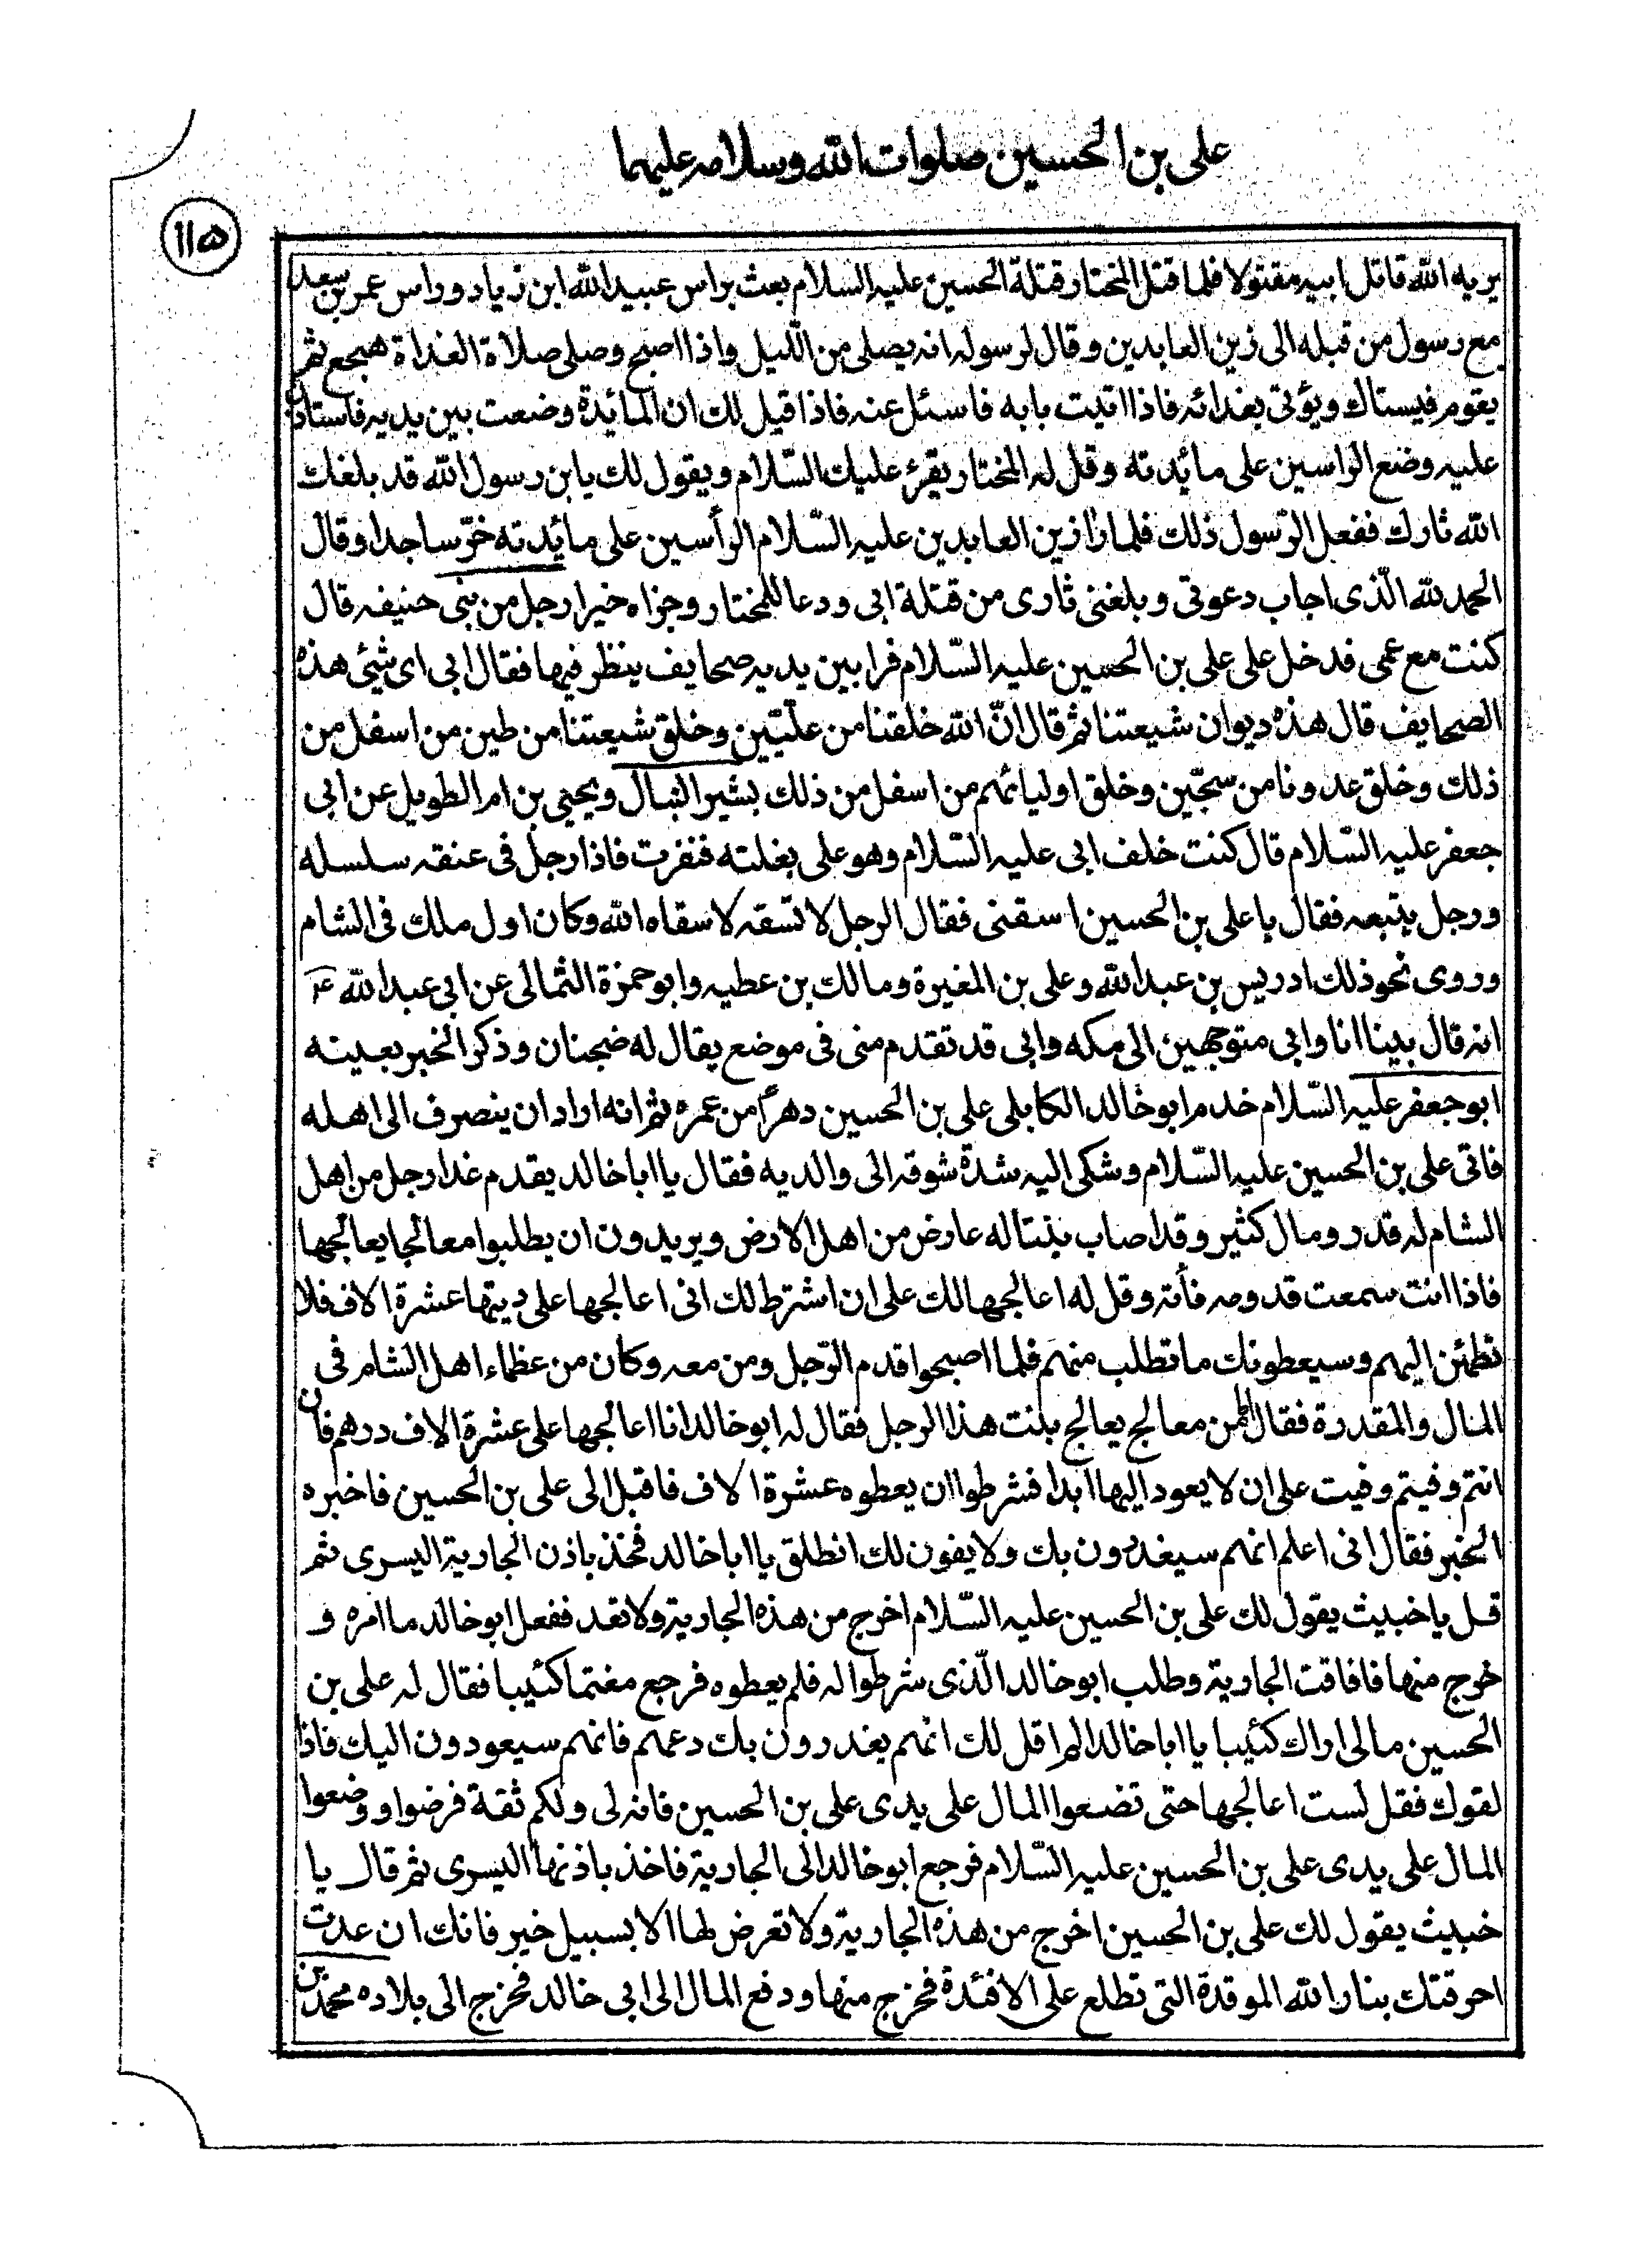 على بن الحسين صلوات الله وسلامه عليهما
١١٥
يريه الله قاتل ابيه مقتولا فلما قتل المختار قتلة الحسين عليه السلام بعث براس عبيد الله ابن زياد وراس عمر بن سعد
مع رسول من قبله الى زين العابدين وقال لرسوله انه يصلى من اللّيل واذا اصبح وصلى صلاة الغداة هجع ثم
يقوم فيستاك ويؤتى بغدائه فاذا اتيت بابه فاسئل عنه فاذا قيل لك ان المائدة وضعت بين يديه فاستاذن
عليه وضع الراسين على مائدته وقل له المختار يقرئ عليك السّلام ويقول لك يابن رسول الله قد بلغك
الله ثارك ففعل الرّسول ذلك فلما راٰ زين العابدين عليه السّلام الرأسين على مائدته خرّ ساجدا وقال
الحمد لله الّذى اجاب دعوتى وبلغنى ثارى من قتلة ابى ودعا للمختار وجزاه خيرا رجل من بنى حنيفه قال
كنت مع عمى فدخل على على بن الحسين عليه السّلام فرا بين يديه صحايف ينظر فيها فقال ابى اى شيئ هذه
الصحايف قال هذه ديوان شيعتنا ثم قال انّ الله خلقنا من علّيّين وخلق شيعتنا من طين من اسفل من
ذلك وخلق عدونا من سجّين وخلق اوليائهم من اسفل من ذلك بشير النبال ويحيى بن ام الطويل عن ابى
جعفر عليه السّلام قال كنت خلف ابى عليه السّلام وهو على بغلته فنفرت فاذا رجل فى عنقه سلسله
ورجل يتبعه فقال يا على بن الحسين اسقنى فقال الرجل لا تسقه لا سقاه الله وكان اول ملك فى الشام
وروى نحو ذلك ادريس بن عبد الله وعلى بن المغيرة ومالك بن عطيه وابو حمزة الثمالى عن ابى عبد الله ع
انه قال بينا انا وابى متوجهين الى مكه وابى قد تقدم منى فى موضع يقال له ضجنان وذكر الخبر بعينه
ابو جعفر عليه السّلام خدم ابو خالد الكابلى على بن الحسين دهرًا من عمره ثم انه اراد ان ينصرف الى اهله
فاتى على بن الحسين عليه السّلام وشكى اليه شدة شوقه الى والديه فقال يا ابا خالد يقدم غدا رجل من اهل
الشام له قدر ومال كثير وقد اصاب بنتا له عارض من اهل الارض ويريدون ان يطلبوا معالجا يعالجها
فاذا انت سمعت قدومه فأته وقل له اعالجها لك على ان اشترط لك انى اعالجها على ديتها عشرة الاف فلا
تطمئن اليهم وسيعطونك ما تطلب منهم فلما اصبحوا قدم الرّجل ومن معه وكان من عظماء اهل الشام فى
المال والمقدرة فقال اما من معالج يعالج بنت هذا الرجل فقال له ابو خالد انا اعالجها على عشرة الاف درهم فان
انتم وفيتم وفيت على ان لا يعود اليها ابدا فشرطوا ان يعطوه عشرة الاف فاقبل الى على بن الحسين فاخبره
الخبر فقال انى اعلم انهم سيغدرون بك ولا يفون لك انطلق يا ابا خالد فخذ باذن الجارية اليسرى ثم
قل يا خبيث يقول لك على بن الحسين عليه السّلام اخرج من هذه الجارية ولا تعد ففعل ابو خالد ما امره و
خرج منها فافاقت الجارية وطلب ابو خالد الّذى شرطوا له فلم يعطوه فرجع مغتما كئيبا فقال له على بن
الحسين مالى اراك كئيبا يا ابا خالد الم اقل لك انهم يغدرون بك دعهم فانهم سيعودون اليك فاذا
لقوك فقل لست اعالجها حتى تضعوا المال على يدى على بن الحسين فانه لى ولكم ثقة فرضوا ووضعوا
المال على يدى على بن الحسين عليه السّلام فرجع ابو خالد الى الجارية فاخذ باذنها اليسرى ثم قال يا
خبيث يقول لك على بن الحسين اخرج من هذه الجارية ولا تعرض لها الا بسبيل خير فانك ان عدت
احرقتك بنار الله الموقدة التى تطلع على الافئدة فخرج منها ودفع المال الى ابى خالد فخرج الى بلاده محمد بن